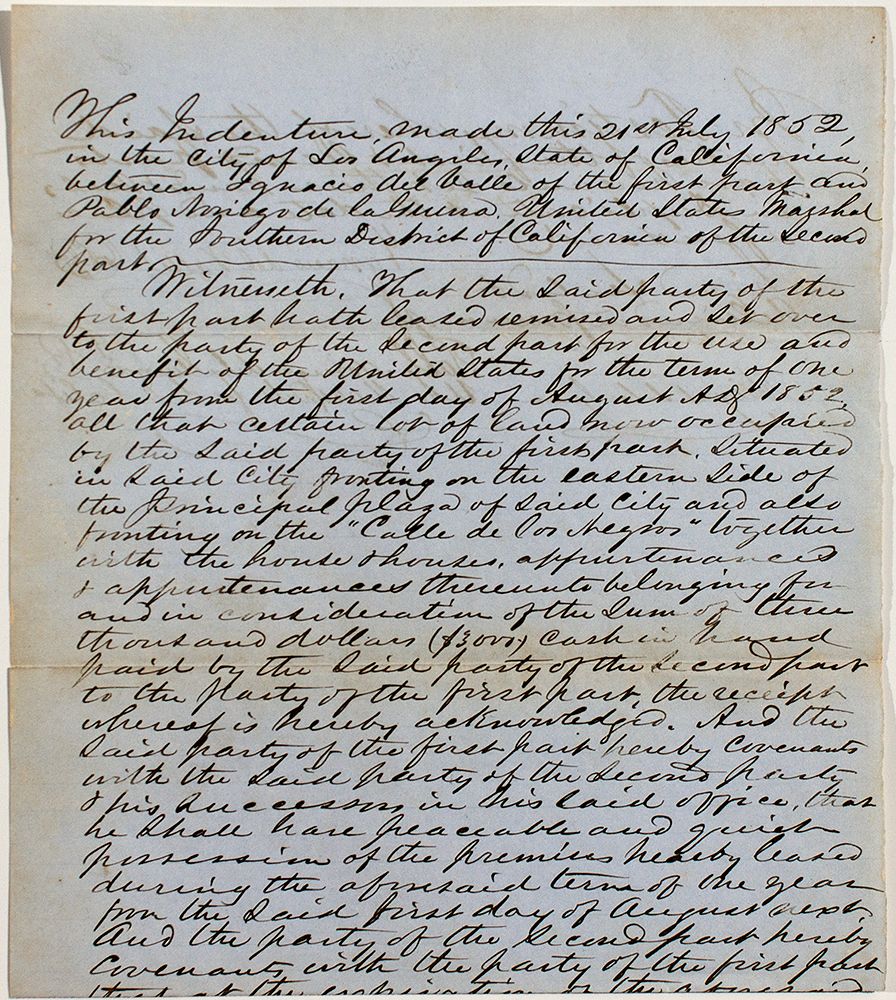 This Indenture, made this 21st July 1852,
in the City of Los Angeles, State of California,
between Ignacio del Valle of the first part and
Pablo Noriego de la Guerra, United States Marshal
for the Southern District of California of the Second
part.
Witnesseth. That the said party of the
first part hath leased remised and set over
to the party of the second part for the use and
benefit of the United States for the term of one
year from the first day of August AD 1852,
all that certain lot of land now occupied
by the said party of the first part, situated
in said City fronting on the eastern side of
the Principal plaza of said City and also
fronting on the "Calle de los Negros" together
with the house & houses, appurtenances
& appurtenances thereunto belonging for
and in consideration of the sum of three
thousand dollars ($3000) cash in hand
paid by the said party of the second part
to the party of the first part, the receipt
whereof is hereby acknowledged. And the
said party of the first part hereby covenants
with the said party of the second party
& his successors in his said office, that
he shall have peaceable and quiet
possession of the premises hereby leased
during the aforesaid term of one year
from the said first day of August next.
And the party of the second part hereby
covenants with the party of the first part
that at the expiration of the aforesaid